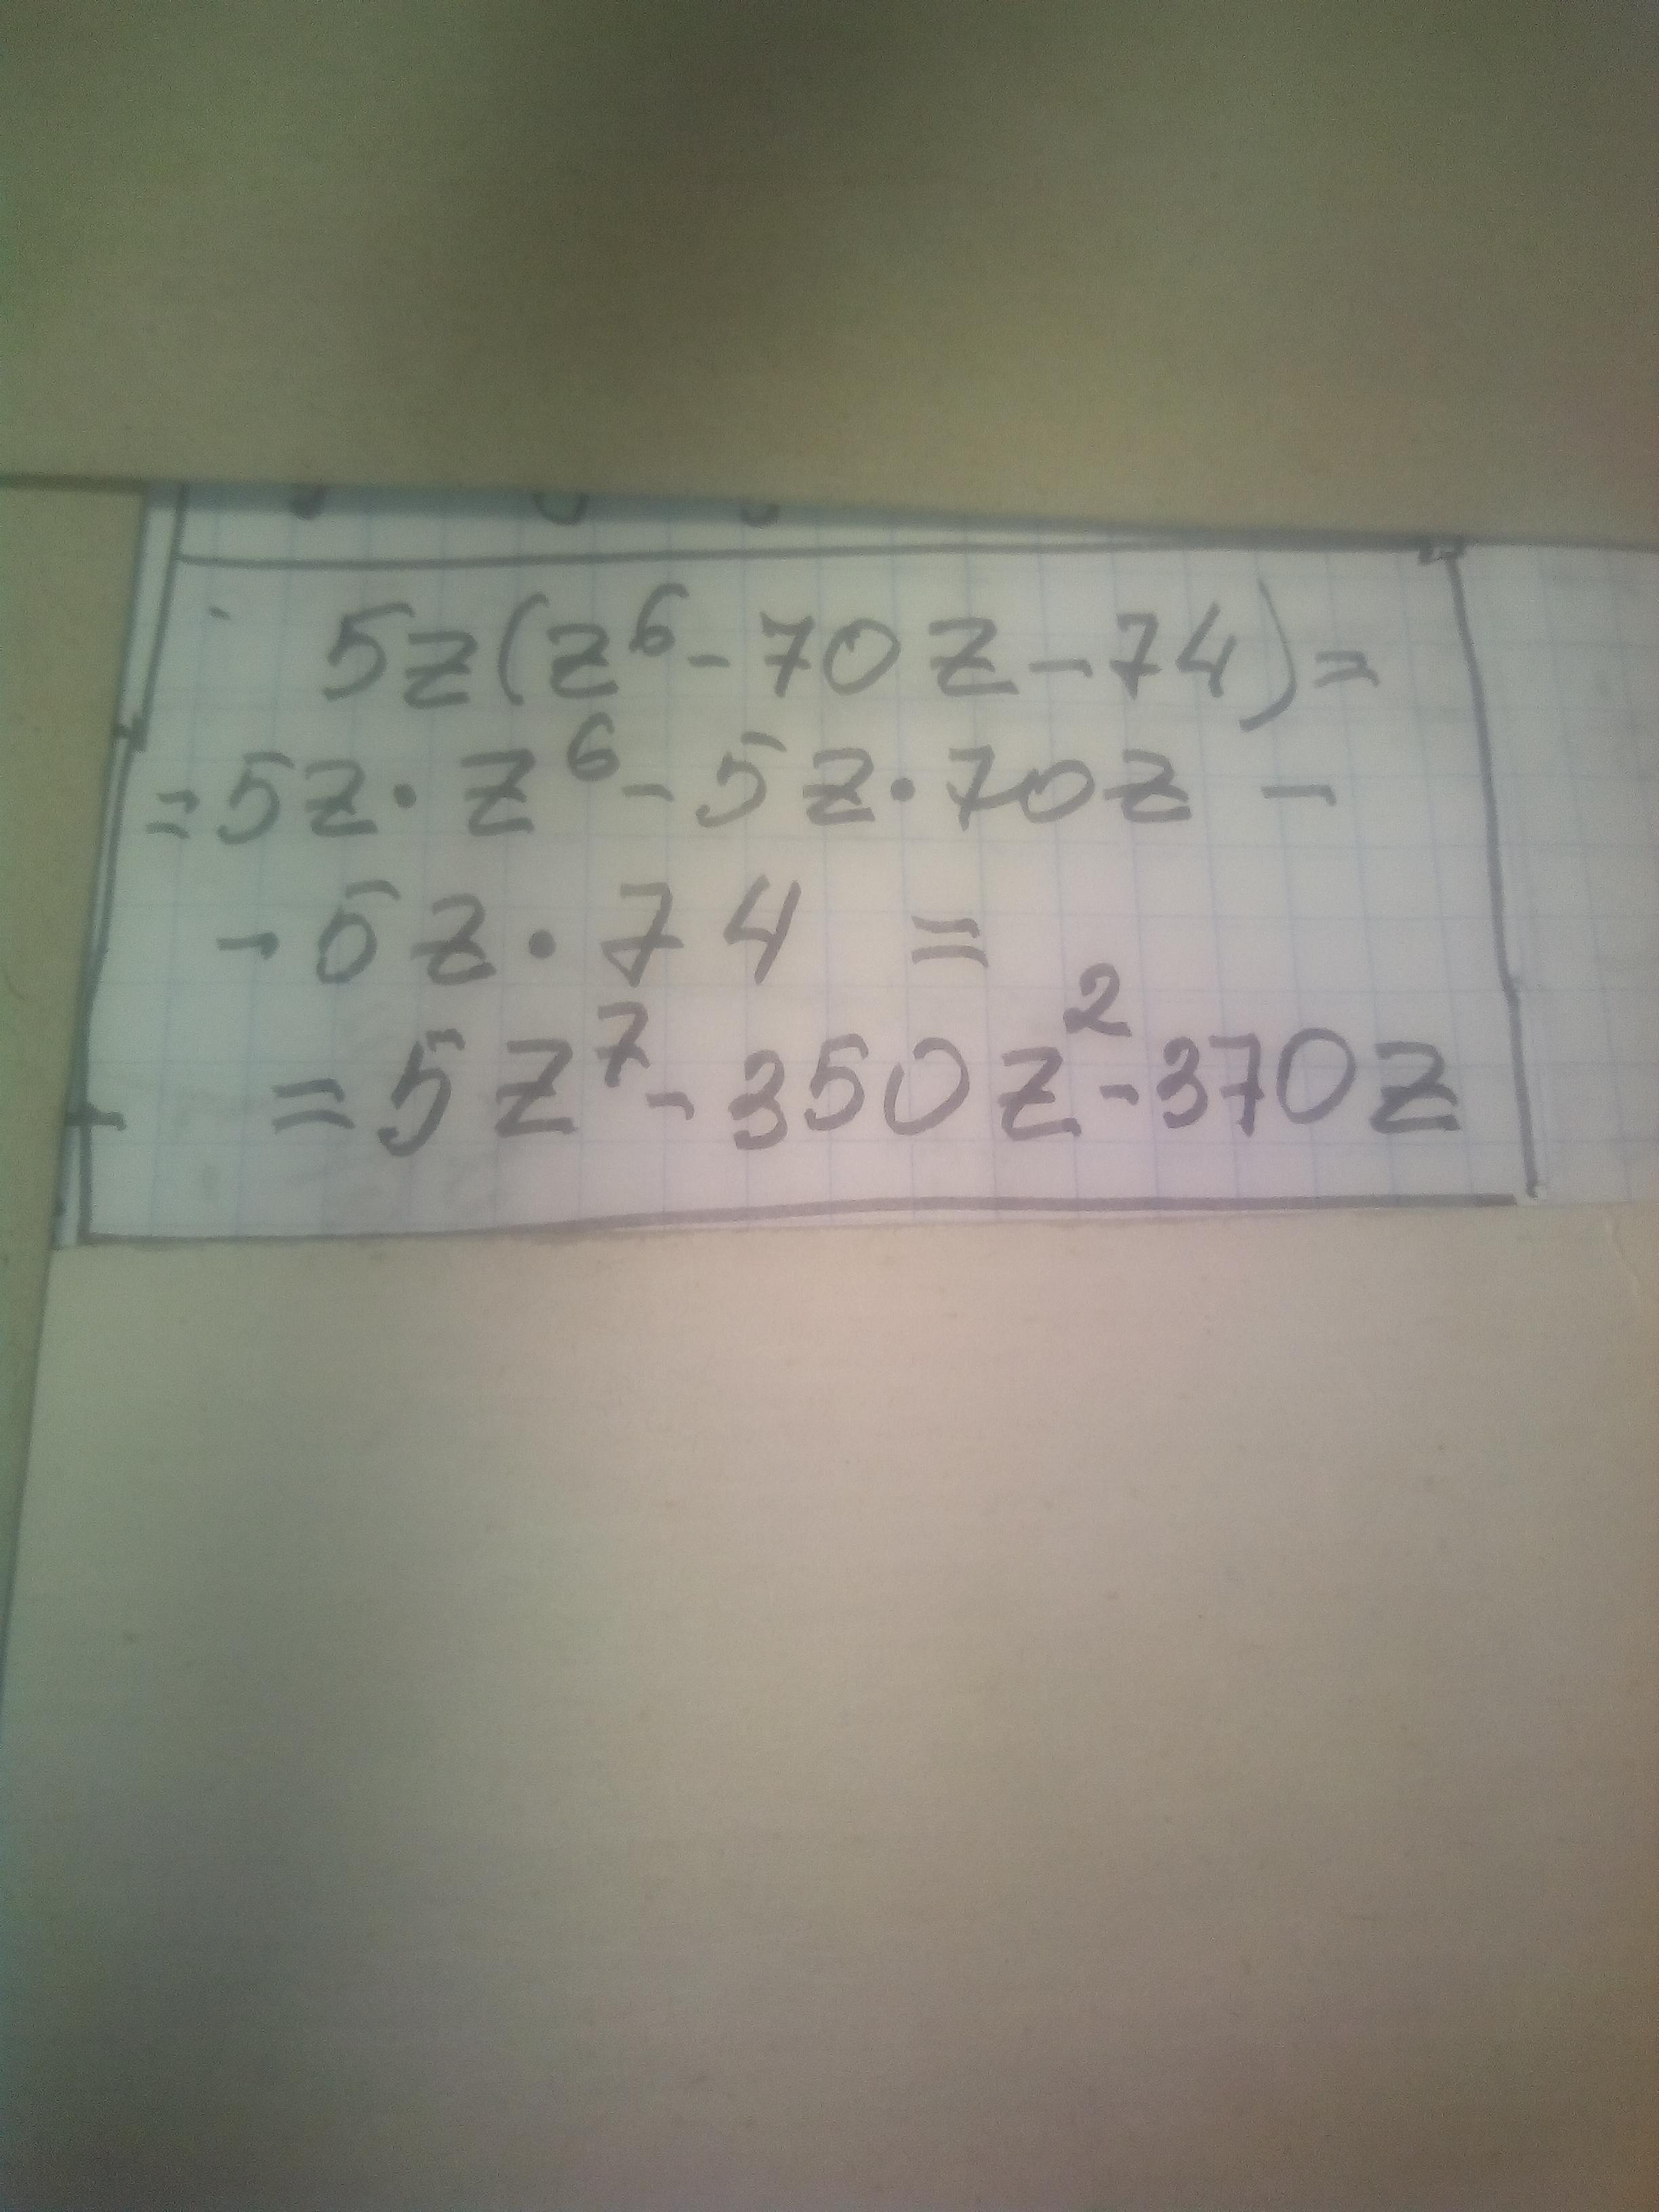 5z(z⁶-70z-74)=
=5z·z⁶-5z·70z-
-5z·74=
=5z⁷-350z²-370z